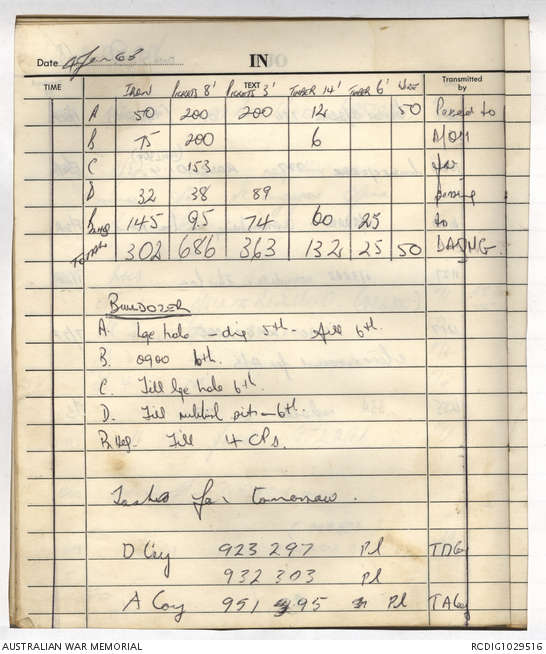 Date 4 Jan 68 IN
TIME TEXT Transmitted by
IRON PICKETS 8' PICKETS 3' TIMBER 14' TIMBER 6' WIRE
A 50 200 200 12 50 Passed to
B 75 200 6
C 153 for
D 32 38 89 passing
B HQ 145 95 74 60 25 to
TOTAL 302 686 363 132 25 50 DAQMG.
BULLDOZER
A. Lge hole - dig 5th - fill 6th.
B. 0900 6th.
C. Fill lge hole 6th.
D. Fill rubbish pits - 6th.
B HQ. Fill 4 CPs.
Tasks for tomorrow.
D Coy 923 297 Pl
932 303 Pl
A Coy 951 95 Pl
AUSTRALIAN WAR MEMORIAL RCDIG1029516